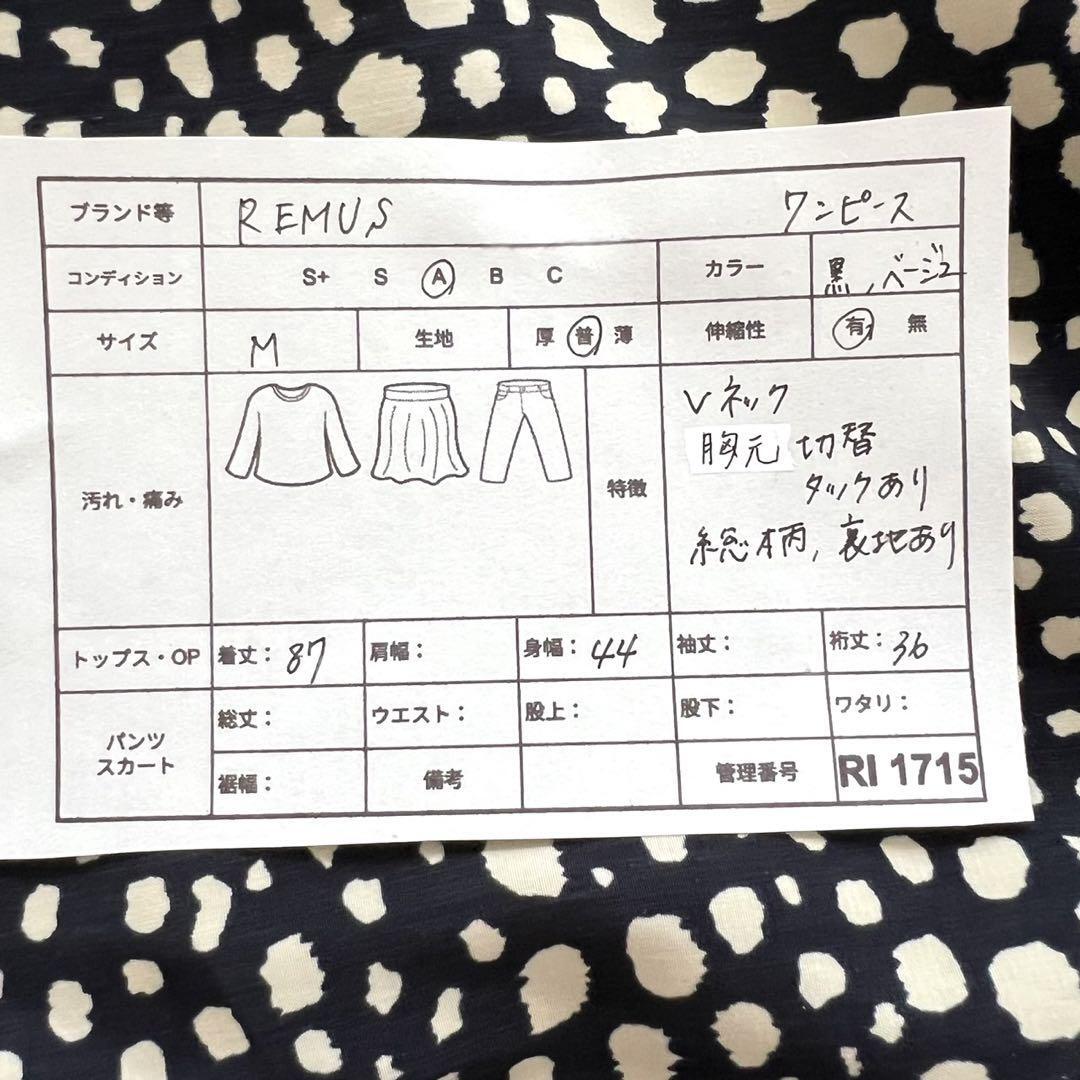 ブランド等 REMUS ワンピース
コンディション S+ S A B C カラー 黒、ベージュ
サイズ M 生地 厚 普 薄 伸縮性 有 無
汚れ・痛み
特徴
Vネック
胸元 切替
タックあり
総柄, 裏地あり
トップス・OP 着丈：87 肩幅： 身幅：44 袖丈： 裄丈：36
パンツ
スカート
総丈： ウエスト： 股上： 股下： ワタリ：
裾幅： 備考 管理番号 RI 1715